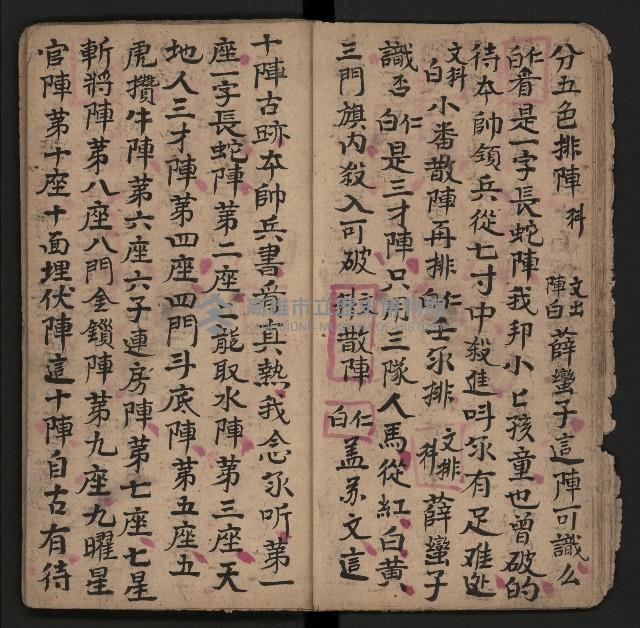 分五色排陣科 文出陣白薛蠻子這陣可識么
仁白看是一字長蛇陣我邦小亡孩童也曾破的
待夲帥領兵從七寸中殺進呌你有足难処
文科白小番散陣再排仁白士你排文排科薛蠻子
識否仁白是三才陣只用三隊人馬從紅白黄
三門旗內殺入可破小散陣仁白盖苏文這
十陣古跡夲帥兵書看真熟我念你听第一
座一字長蛇陣第二座二龍取水陣第三座天
地人三才陣第四座四門斗底陣第五座五
虎攢牛陣第六座六子連房陣第七座七星
斬將陣第八座八門金鎖陣第九座九曜星
官陣第十座十面埋伏陣這十陣自古有待
高雄市立歷史博物館
KAOHSIUNG MUSEUM OF HISTORY